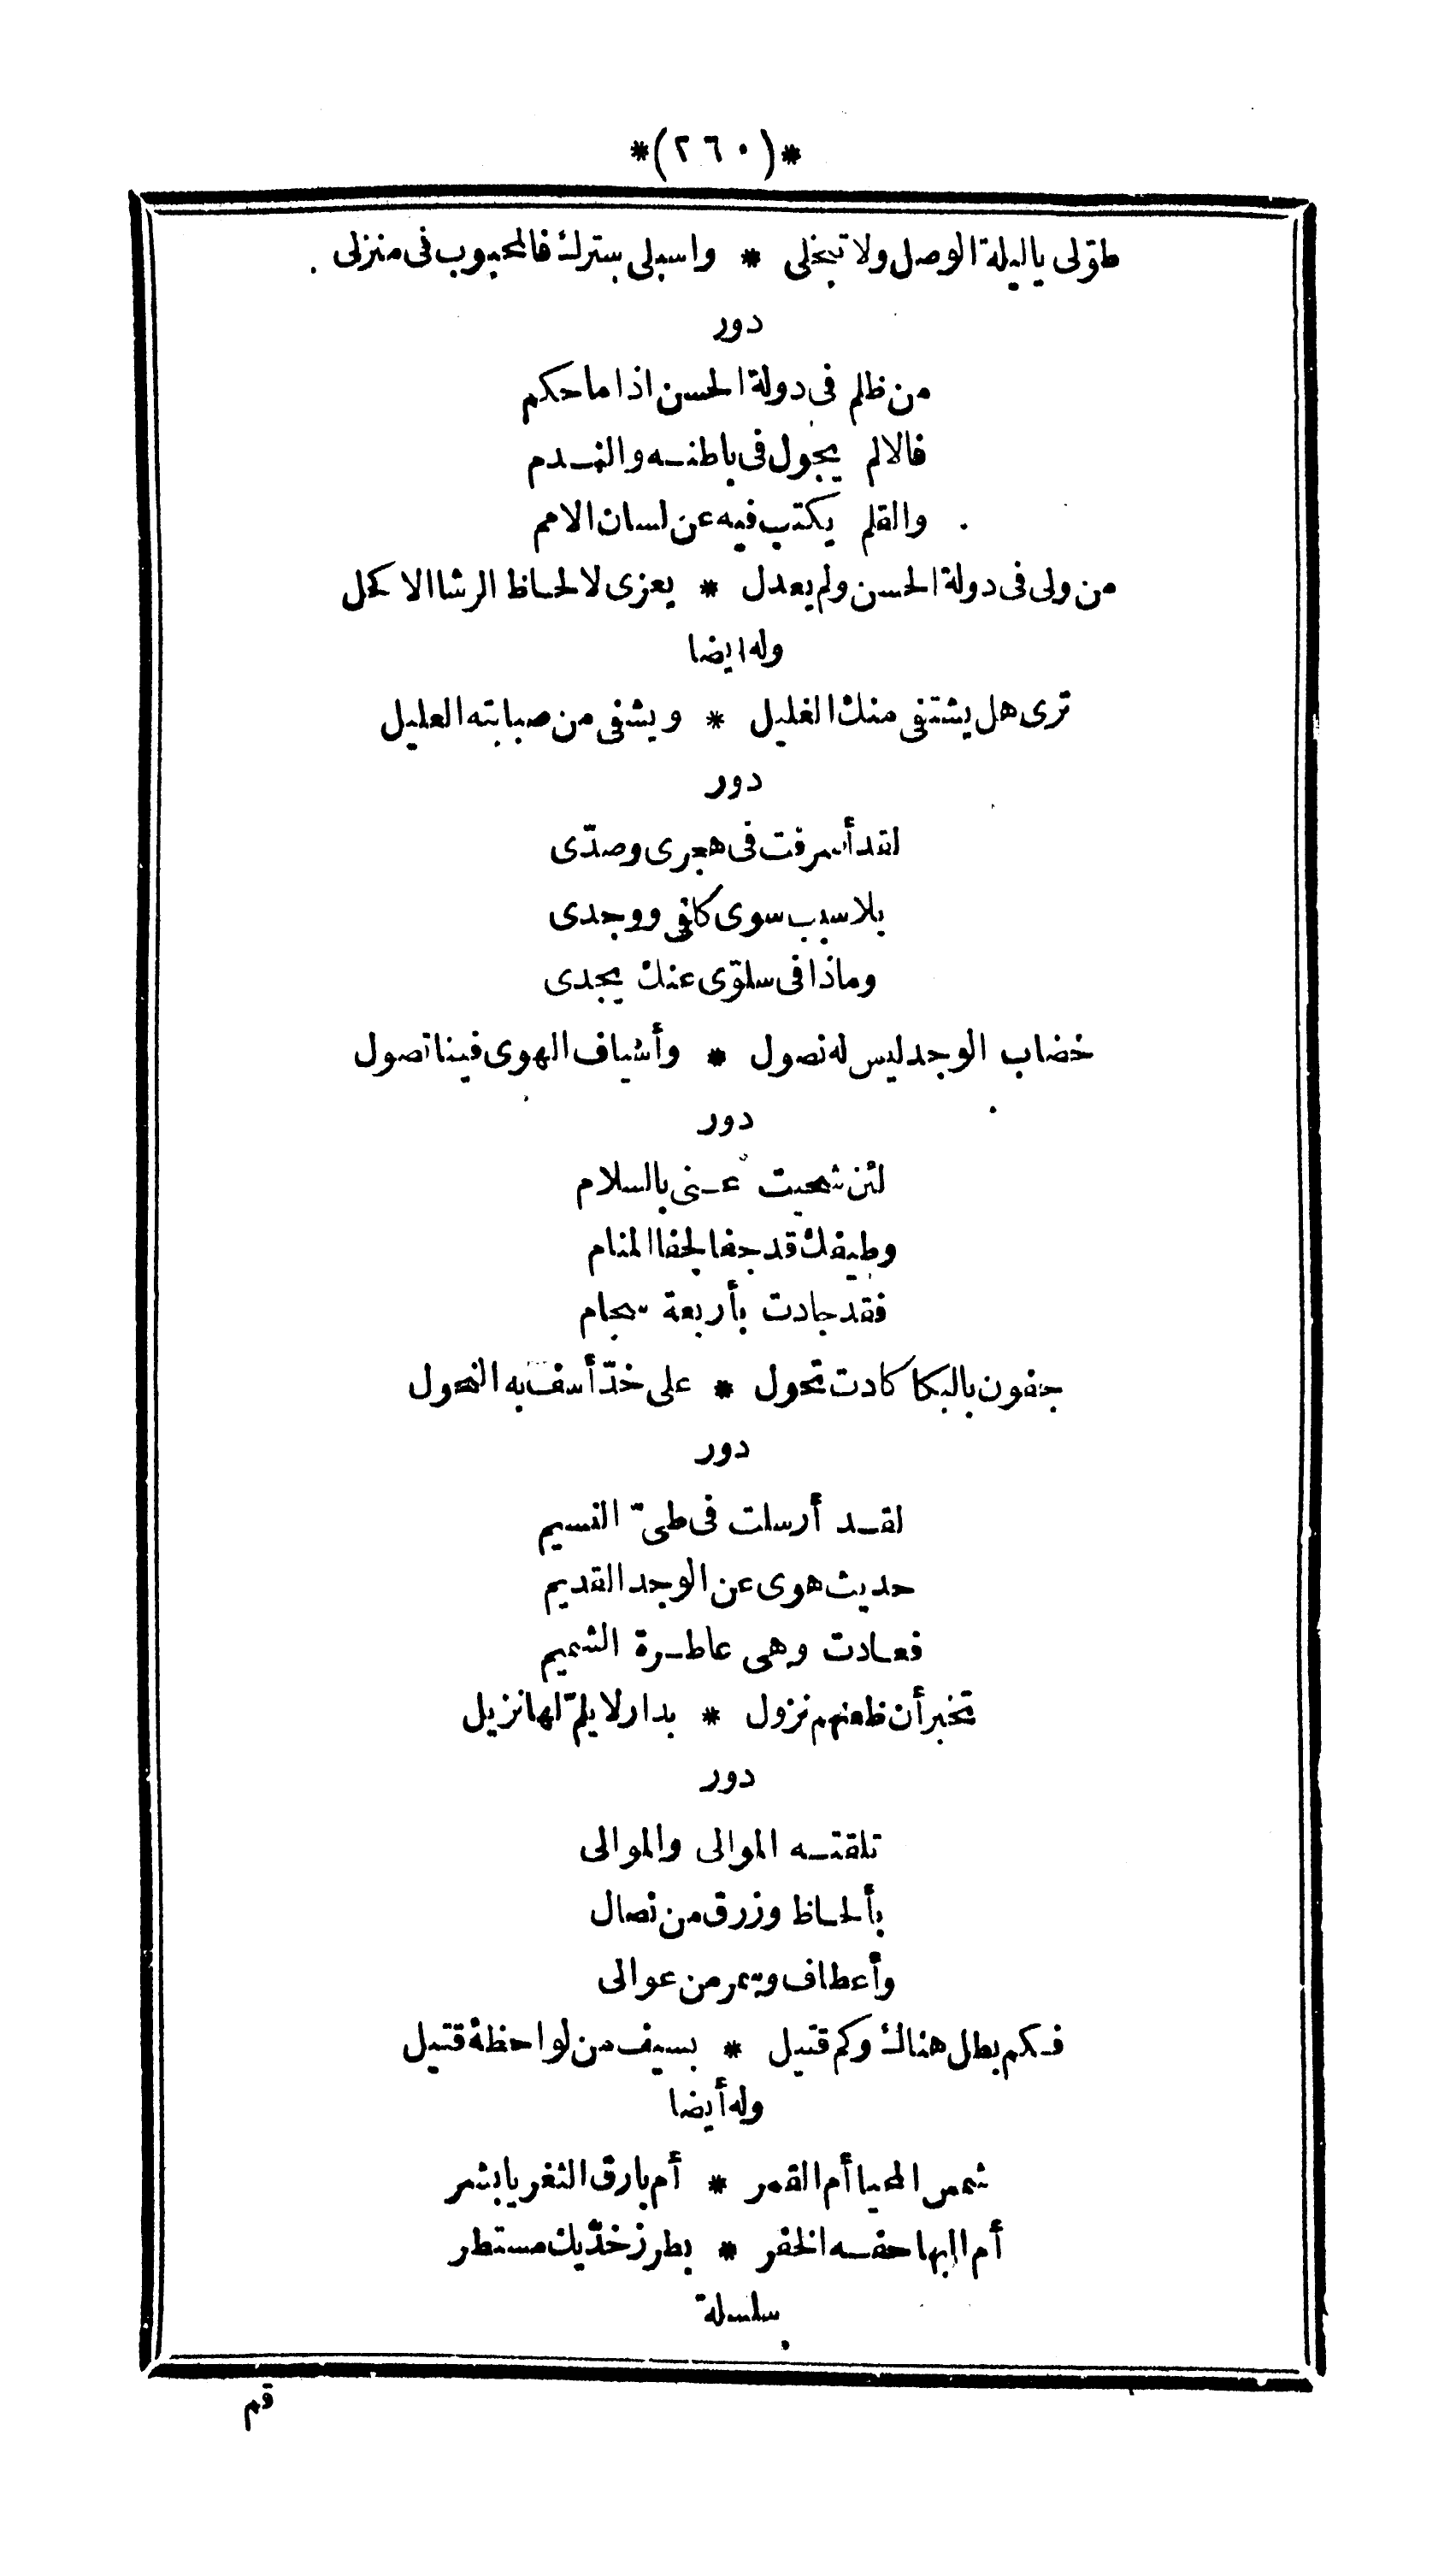 *(٢٦٠)*
طوّلى ياليلة الوصل ولا تبخلى * واسبلى بسترك فالمحبوب فى منزلى
دور
من ظلم فى دولة الحسن اذا ما حكم
فالالم يجول فى باطنـه والنـدم
والقلم يكتب فيه عن لسان الامم
من ولى فى دولة الحسن ولم يعدل * يعزى لا لحاظ الرشا الاكحل
وله ايضا
ترى هل يشتفى منك الغليل * ويشفى من صبابته العليل
دور
لقد أسرفت فى هجرى وصدّى
بلا سبب سوى كلفى ووجدى
وماذا فى سلوّى عنك يجدى
خضاب الوجد ليس له نصول * وأسياف الهوى فينا تصول
دور
لئن شحيت عـنى بالسلام
وطيفك قد جفا لجفا المنام
فقد جادت بأربعة سجام
جفون بالبكا كادت تحول * على خدّ أسف به النحول
دور
لقـد أرسلت فى طىّ النسيم
حديث هوى عن الوجد القديم
فعـادت وهى عاطـرة الشميم
تخبر أن ظعنهم نزول * بدار لا يلمّ لها نزيل
دور
تلقتـه الموالى والموالى
بألحاظ وزرق من نصال
وأعطاف وسمر من عوالى
فـكم بطل هناك وكم قتيل * بسيف من لواحظه قتيل
وله أيضا
شمس المحيا أم القمر * أم بارق الثغر يا بشر
أم البها حفـه الخفر * بطرز خدّيك مستطر
سلسلة
قم